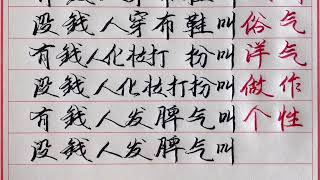 没钱人穿布鞋叫俗气
有钱人化妆打扮叫洋气
没钱人化妆打扮叫做作
有钱人发脾气叫个性
没钱人发脾气叫